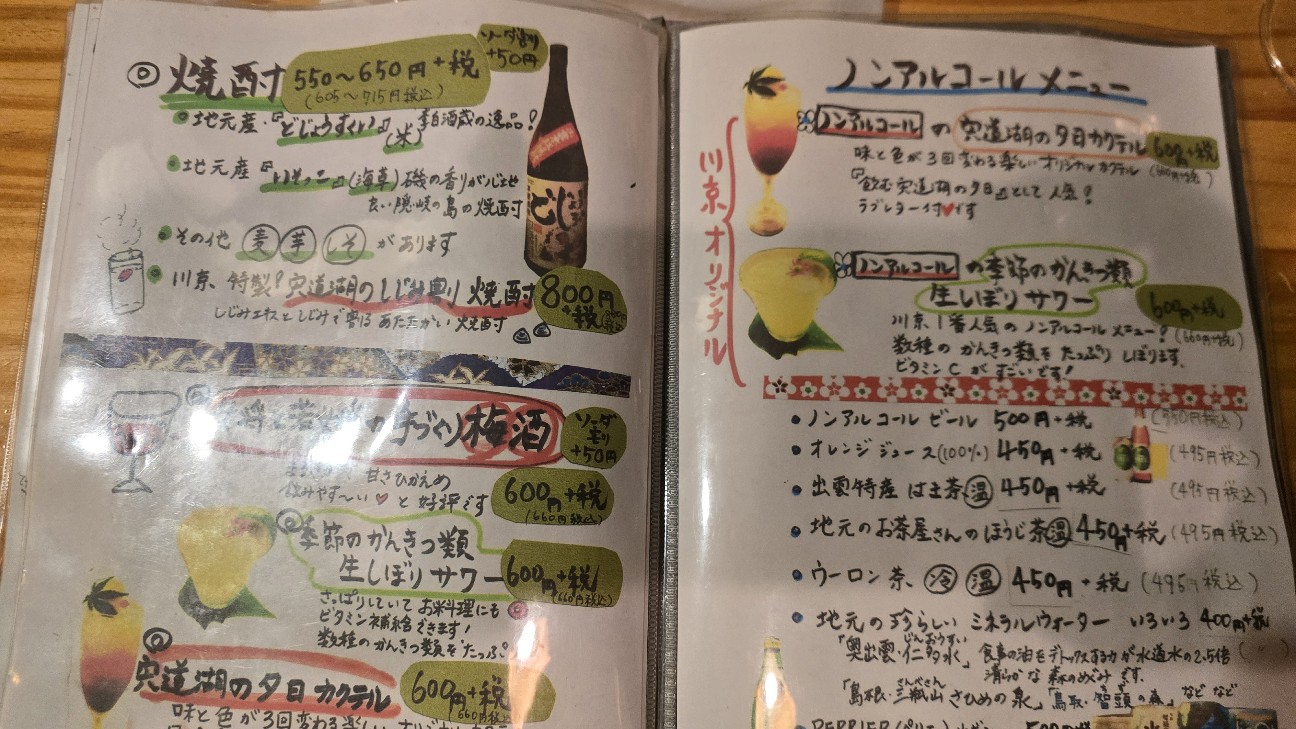 焼酎 550〜650円+税
(605〜715円税込)
ソーダ割り
+50円
・地元産・『どじょうすくい』(米) 李白酒蔵の逸品!
・地元産『いそっこ』(海草) 磯の香りが心地
良い隠岐の島の焼酎
・その他 麦 芋 しそ があります
・川京、特製!宍道湖のしじみ割り焼酎 800円
+税
しじみエキスとしじみで割る あたたかい焼酎
どじ
の手づくり梅酒
ソーダ
割り
+50円
甘さひかえめ
飲みやす〜い♥と好評です
600円+税
(660円税込)
季節のかんきつ類
生しぼりサワー 600円+税
(660円税込)
さっぱりしていて お料理にも
ビタミン補給できます!
数種のかんきつ類をたっぷ
宍道湖の夕日カクテル 600円+税
(660円税込)
味と色が3回変わる楽しい オリジナル
ノンアルコールメニュー
川京オリジナル
ノンアルコールの宍道湖の夕日カクテル 600円+税
(660円税込)
味と色が3回変わる楽しいオリジナルカクテル
『飲む宍道湖の夕日』として人気!
ラブレター付♥です
ノンアルコールの季節のかんきつ類
生しぼりサワー
600円+税
(660円税込)
川京1番人気のノンアルコールメニュー!
数種のかんきつ類をたっぷりしぼります。
ビタミンCがすごいです!
・ノンアルコールビール 500円+税 (550円税込)
・オレンジジュース(100%) 450円+税 (495円税込)
・出雲特産 はま茶 温 450円+税 (495円税込)
・地元のお茶屋さんのほうじ茶 温 450円+税 (495円税込)
・ウーロン茶、冷 温 450円+税 (495円税込)
・地元の珍らしい ミネラルウォーター いろいろ 400円+税
「奥出雲・仁多水」 食事の油をデトックスする力が水道水の2.5倍
清らかな森のめぐみです。
「島根・三瓶山さひめの泉」「鳥取・智頭の森」などなど